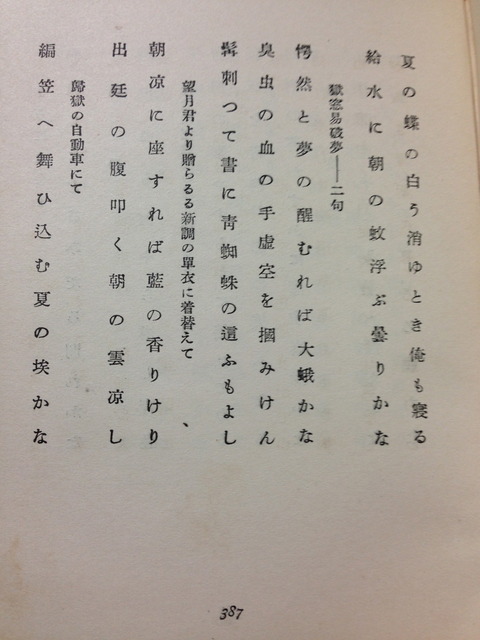 夏の蝶の白う消ゆとき俺も寝る
給水に朝の蚊浮ぶ曇りかな
獄窓易破夢――二句
愕然と夢の醒むれば大蛾かな
臭虫の血の手虚空を摑みけん
髯刺つて書に靑蜘蛛の這ふもよし
望月君より贈らるる新調の單衣に着替えて、
朝凉に座すれば藍の香りけり
出廷の腹叩く朝の雲凉し
歸獄の自動車にて
編笠へ舞ひ込む夏の埃かな
387